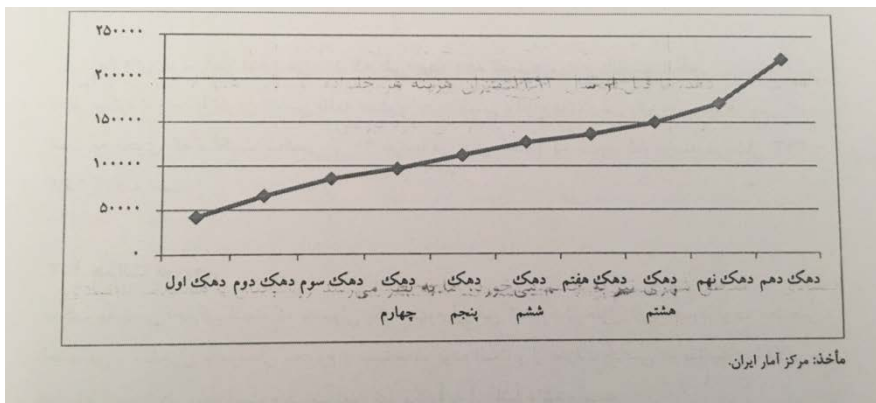 ۲۵۰۰۰۰
۲۰۰۰۰۰
۱۵۰۰۰۰
۱۰۰۰۰۰
۵۰۰۰۰
۰
دهک اول دهک دوم دهک سوم دهک چهارم دهک پنجم دهک ششم دهک هفتم دهک هشتم دهک نهم دهک دهم
مأخذ: مرکز آمار ایران.